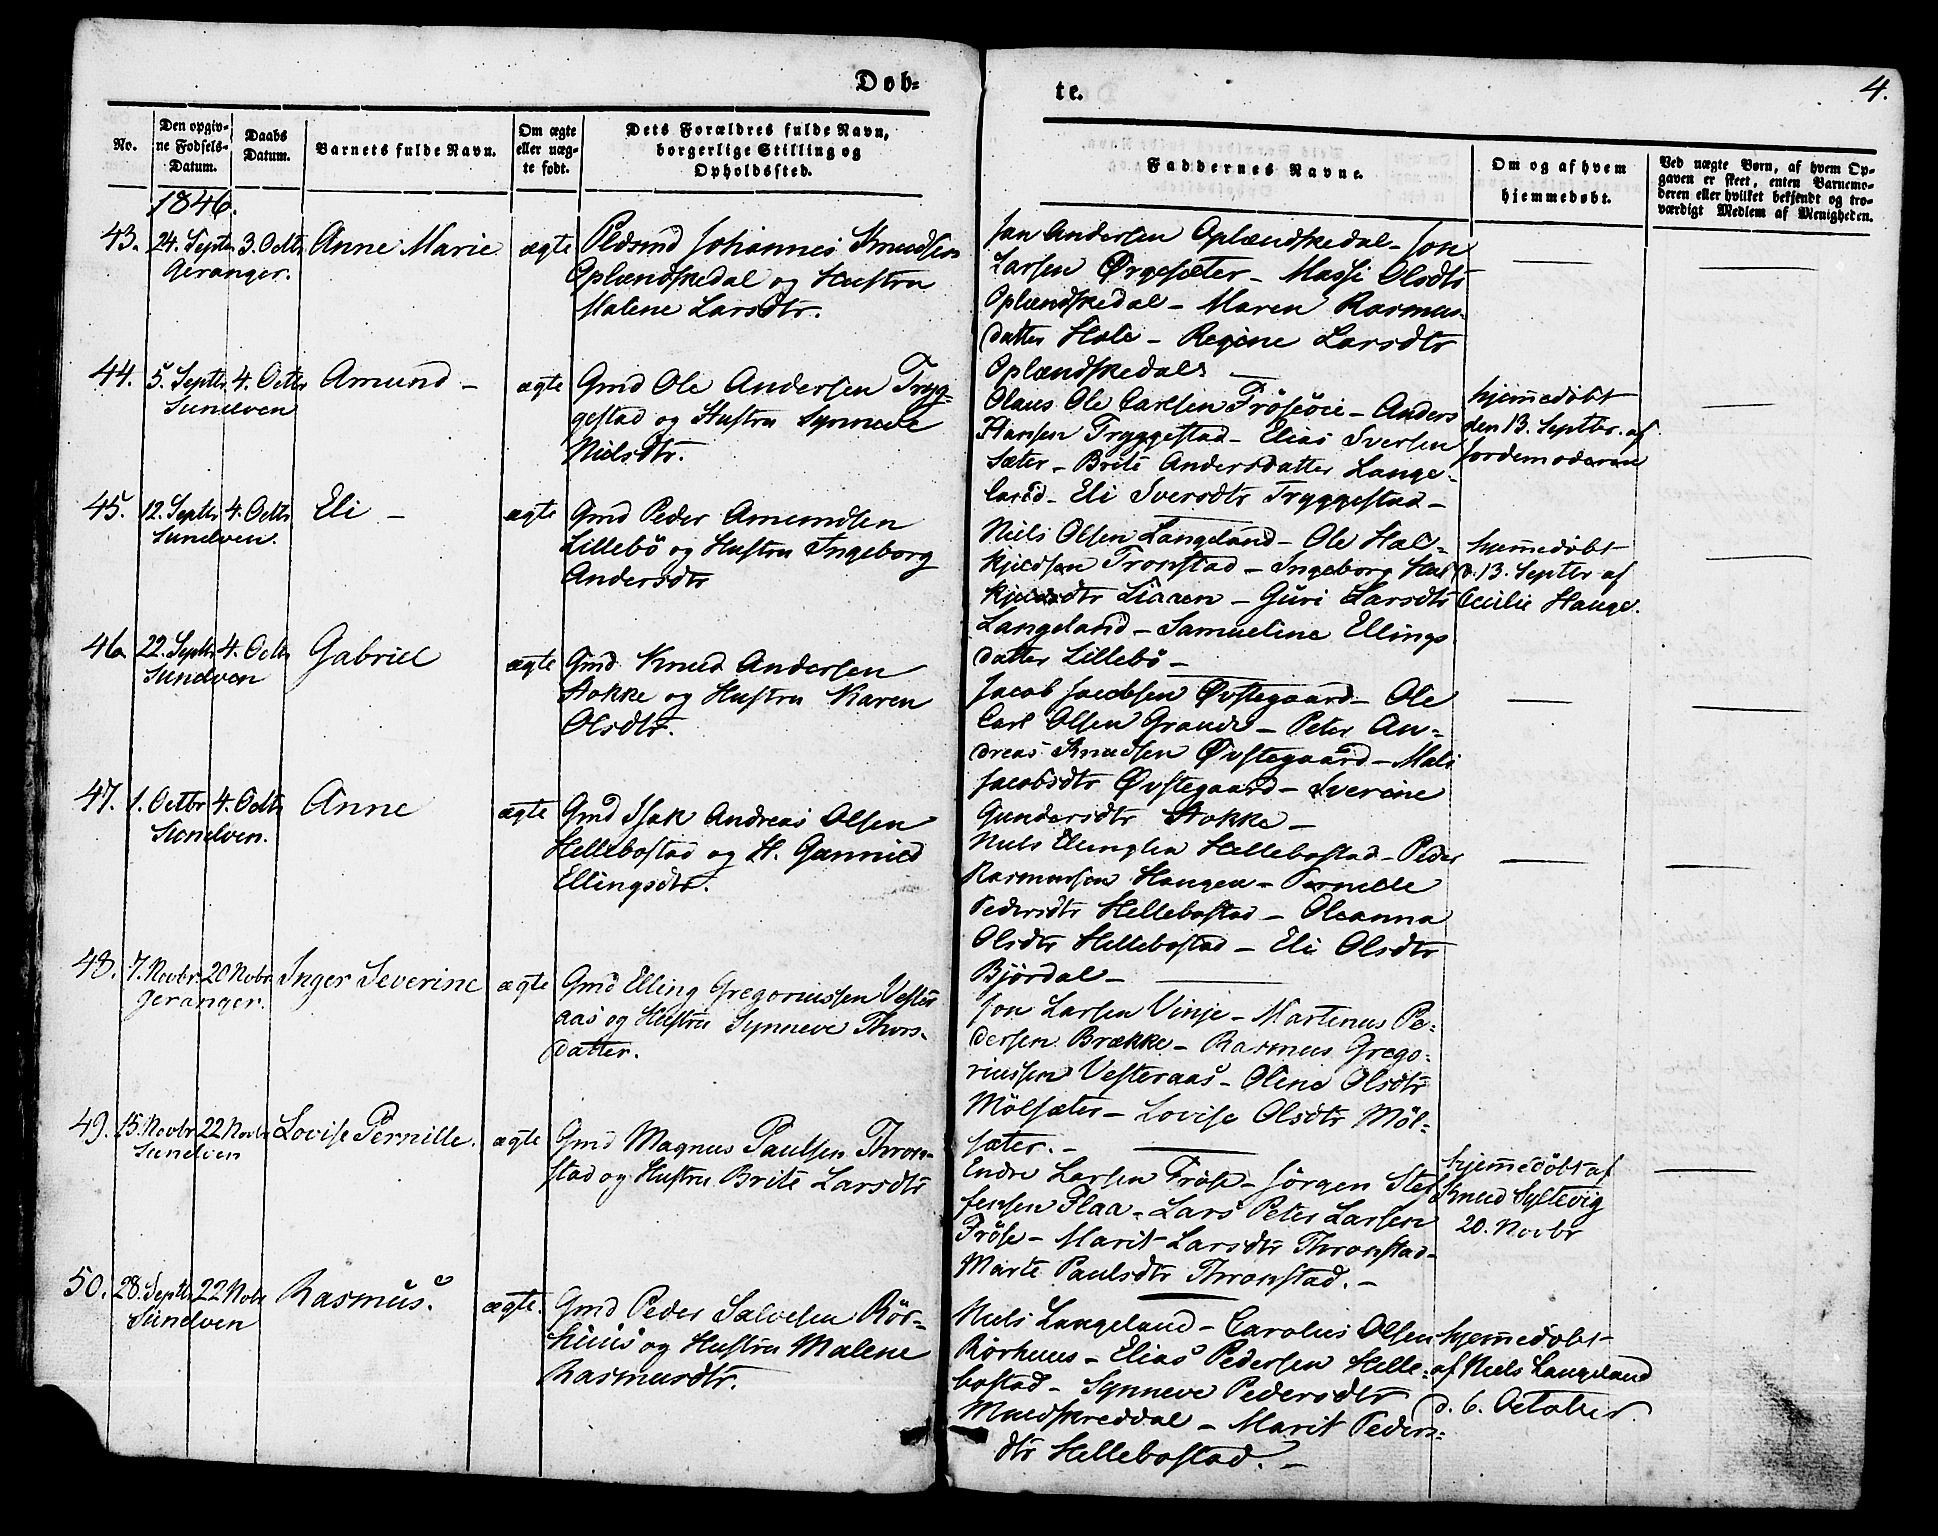 Døb-
te.
4.
No.
Den opgiv-
ne Fødsels-
Datum.
Daabs
Datum.
Barnets fulde Navn.
Om ægte
eller uæg-
te født.
Dets Forældres fulde Navn,
borgerlige Stilling og
Opholdssted.
Faddernes Navne.
Om og af hvem
hjemmedøbt.
Ved uægte Børn, af hvem Op-
gaven er skeet, enten Barnemo-
deren eller hvilket bekjendt og tro-
værdigt Medlem af Menigheden.
1846.
43. 24. Septbr 3. Octbr Anne Marie ægte Johannes Knudsen
Geranger. Oplændskedal og Hustru
Malene Larsdtr.
Jon Andersen Oplændskedal - Jon
Larsen Ørgesæter - Massi Olsdtr
Oplændskedal - Maren Rasmus-
datter Hole - Regine Larsdtr
Oplændskedal
44. 5. Septbr 4. Octbr Amund - ægte Gmd Ole Andersen Tryg-
Sundven gestad og Hustru Synneve
Nielsdtr.
Olaus Ole Carlsen Frösöie - Anders
Hansen Tryggestad - Elias Iversen
Sæter - Brite Andersdatter Lange-
land - Eli Iversdtr Tryggestad -
hjemmedøbt
den 13. Septbr. af
Jordemoderen
45. 12. Septbr 4. Octbr Eli - ægte Gmd Peder Amundsen
Sundven. Lillebö og Hustru Ingeborg
Andersdtr
Niels Olsen Langeland - Ole Hal-
kjeldsen Tronstad - Ingeborg Hal
kjeldsdtr Liaaen - Guri Larsdtr
Langeland - Samueline Ellings
datter Lillebö -
hjemmedøbt
d. 13. Septbr af
Cecilie Hauge.
46. 22. Septbr 4. Octbr Gabriel ægte Gmd Knud Andersen
Sundven Stokke og Hustru Karen
Olsdtr.
Jacob Jacobsen Øvstegaard - Ole
Carl Olsen Grande - Peter An-
dreas Knudsen Øvstegaard - Mali
Jacobsdtr Øvstegaard - Iverine
Gundersdtr Stokke -
47. 1. Octbr 4. Octbr Anne ægte Gmd Isak Andreas Olsen
Sundven. Hellebostad og H. Gunnild
Ellingsdtr.
Niels Hellebostad - Peder
Rasmussen Haugen - Pernille
Pedersdtr Hellebostad - Oleanna
Olsdtr Hellebostad - Eli Olsdtr
Bjørdal -
48. 7. Novbr 20 Novbr Inger Severine ægte Gmd Elling Gregoriussen Vester
Geranger. aas og Hustru Synneve Thors-
datter.
Jon Larsen Vinje - Martinus Pe-
dersen Brække - Rasmus Grego-
riussen Vesteraas - Oline Olsdtr
Mölsæter - Lovise Olsdtr Möl-
sæter. -
49. 15. Novbr 22 Novbr Lovise Pernille. ægte Gmd Magnus Paulsen Thron-
Sundven stad og Hustru Brite Larsdtr
Endre Larsen Fröse - Jörgen Stef
fensen Flaa - Lars Peter Larsen
Fröse - Marit Larsdtr Thronstad -
Marte Paulsdtr Thronstad. -
hjemmedöbt af
Knud Syltevig
20. Novbr
50. 28. Septbr 22 Novbr Rasmus. ægte. Gmd Peder Salvesen Rör-
Sundven huus og Hustru Malene
Rasmusdtr.
Niels Langeland - Carolus Olsen
Rörhuus - Elias Pedersen Helle-
bostad - Synneve Pedersdtr
Muldskreddal - Marit Peders-
dtr Hellebostad. -
hjemmedøbt
af Niels Langeland
d. 6. October.